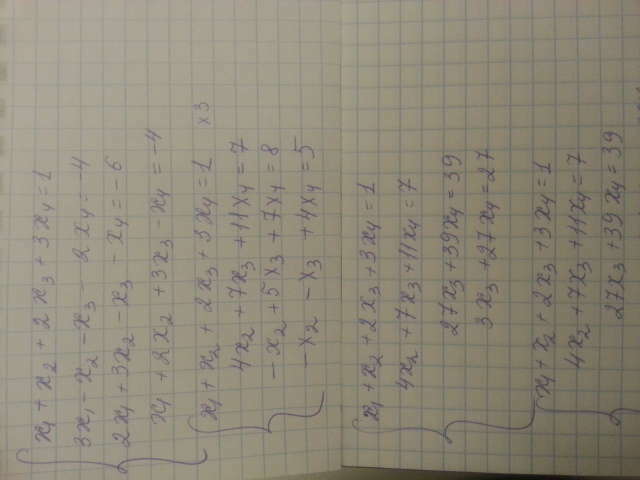 x₁ + x₂ + 2x₃ + 3x₄ = 1
3x₁ - x₂ - x₃ - 2x₄ = -4
2x₁ + 3x₂ - x₃ - x₄ = -6
x₁ + 2x₂ + 3x₃ - x₄ = -4
x₁ + x₂ + 2x₃ + 3x₄ = 1 x3
4x₂ + 7x₃ + 11x₄ = 7
-x₂ + 5x₃ + 7x₄ = 8
-x₂ - x₃ + 4x₄ = 5
x₁ + x₂ + 2x₃ + 3x₄ = 1
4x₂ + 7x₃ + 11x₄ = 7
27x₃ + 39x₄ = 39
3x₃ + 27x₄ = 27
x₁ + x₂ + 2x₃ + 3x₄ = 1
4x₂ + 7x₃ + 11x₄ = 7
27x₃ + 39x₄ = 39